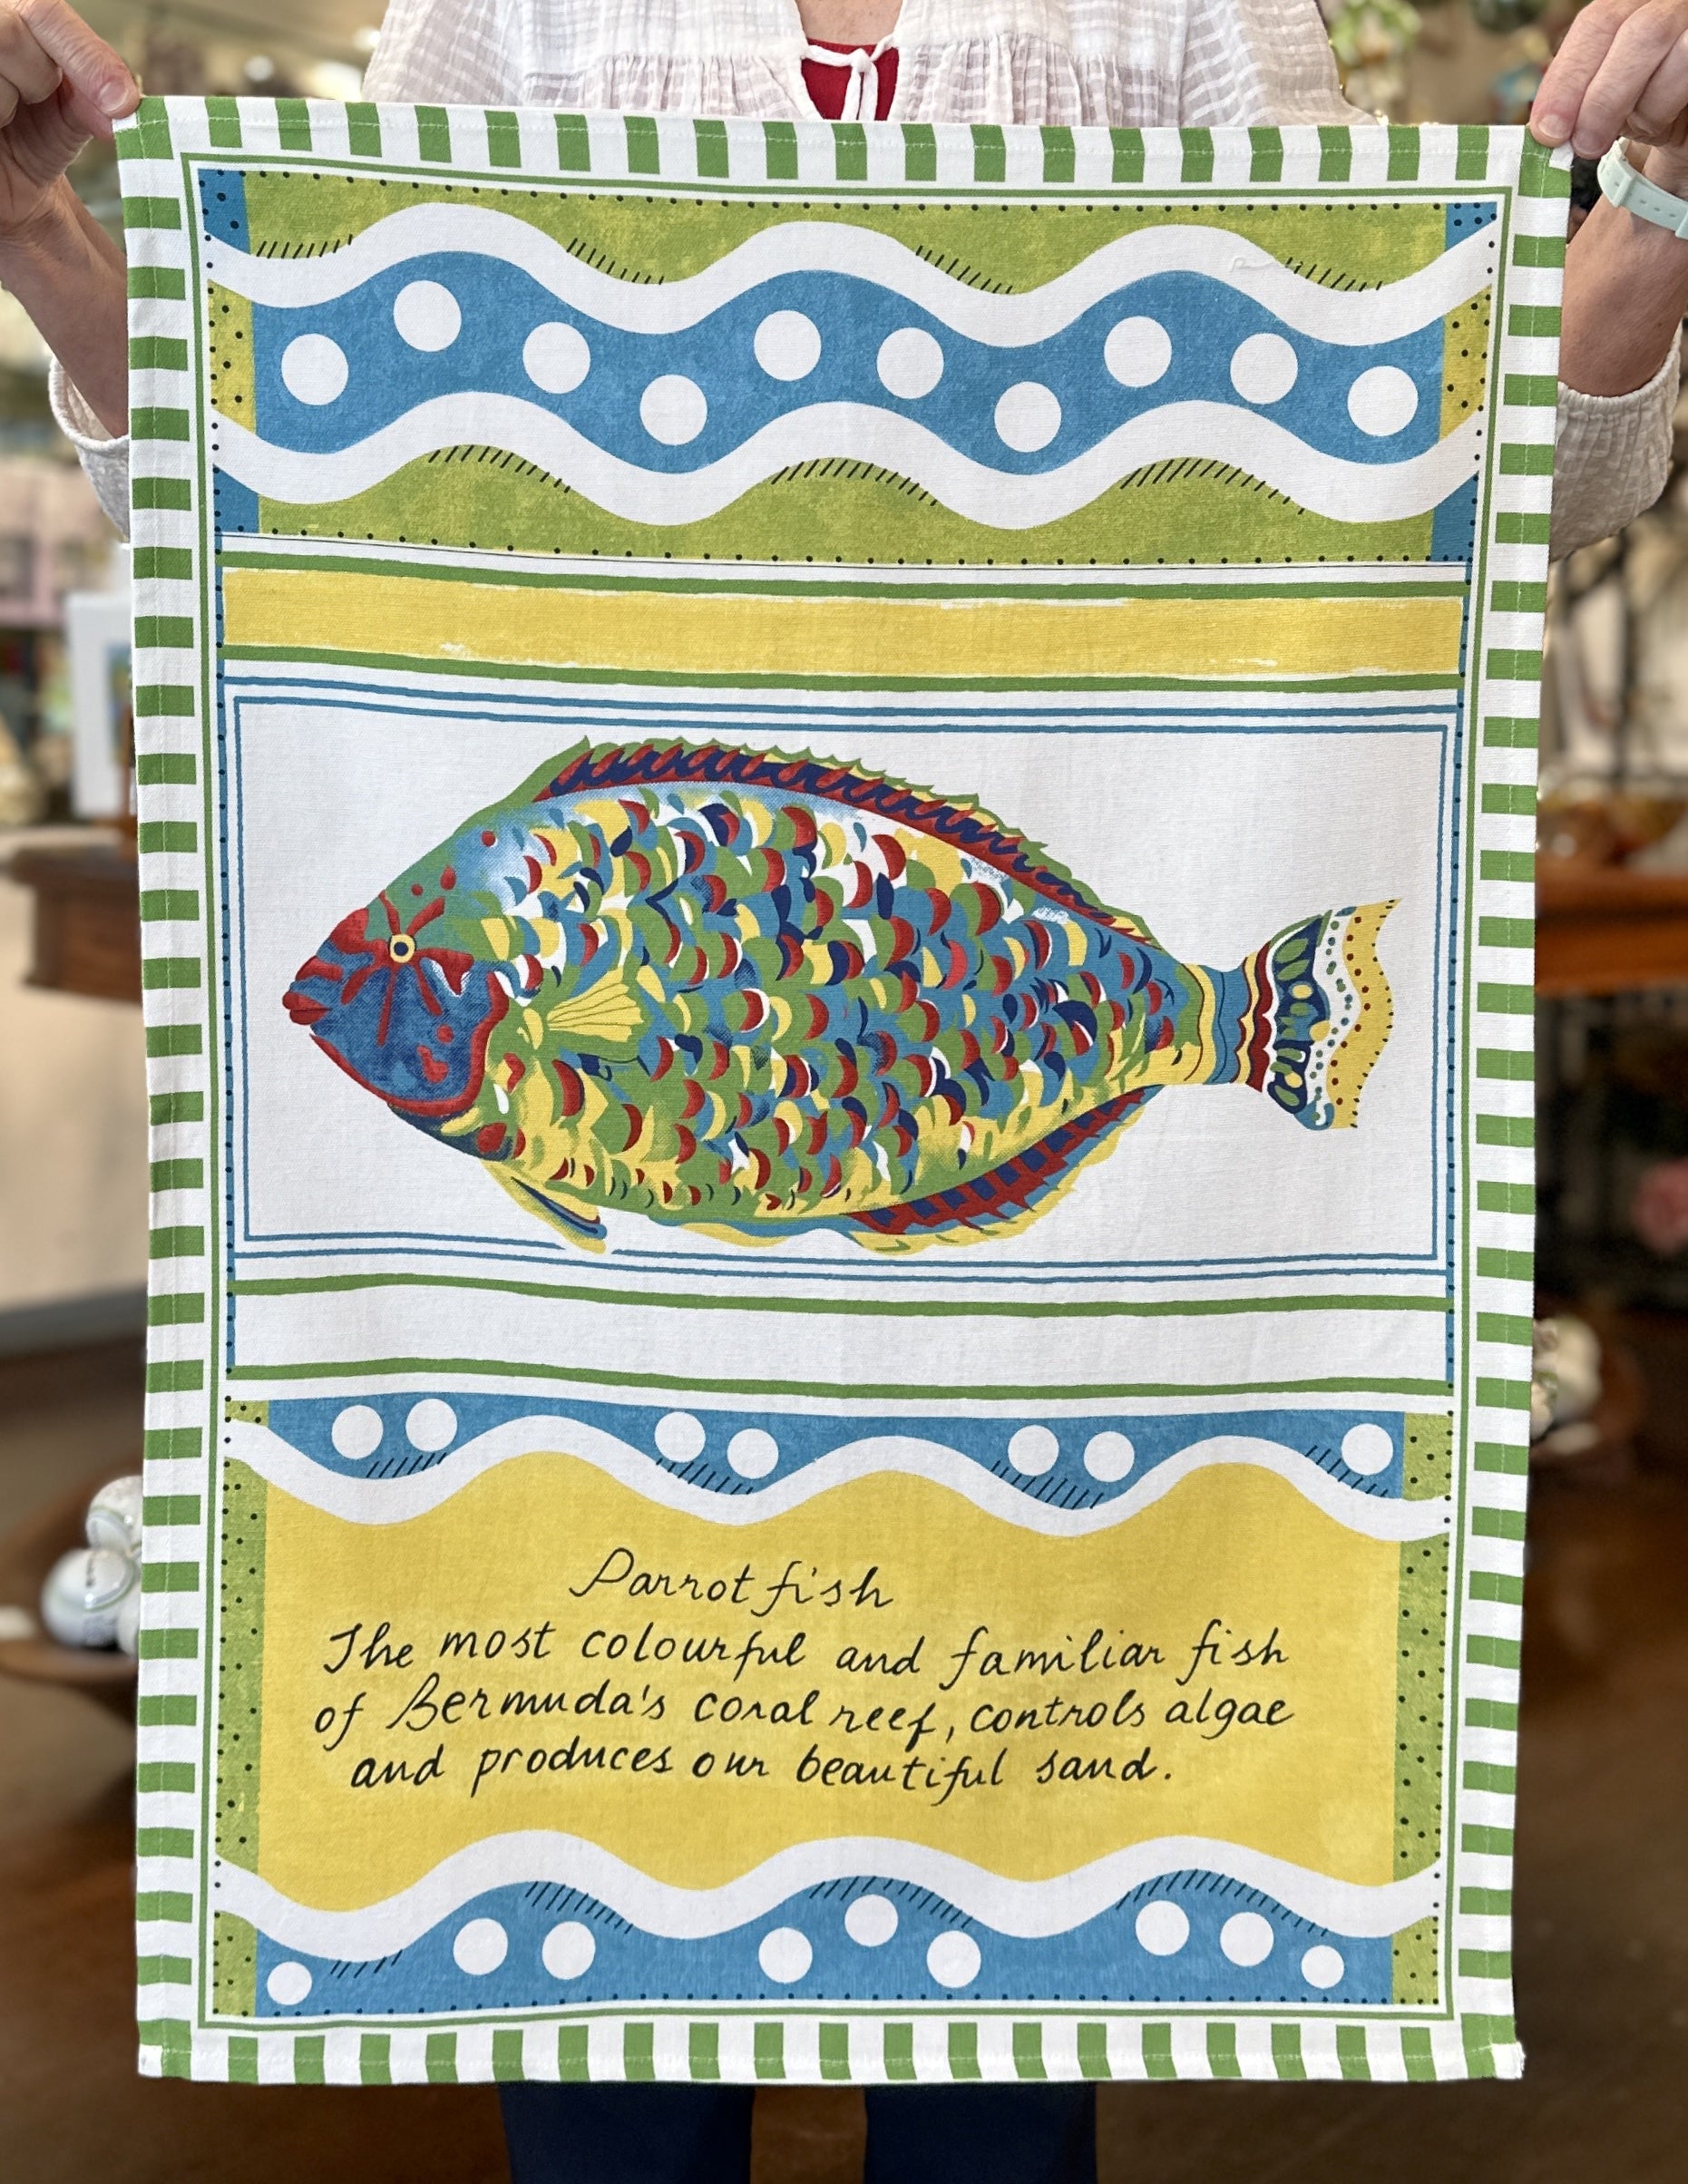 Parrot fish
The most colourful and familiar fish
of Bermuda's coral reef, controls algae
and produces our beautiful sand.